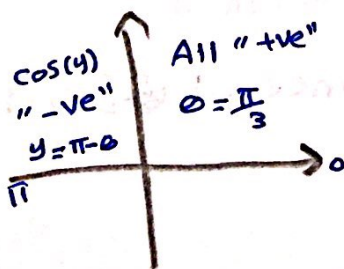 cos(y)
"-ve"
y=π-θ
π
All "+ve"
θ=π/3
0